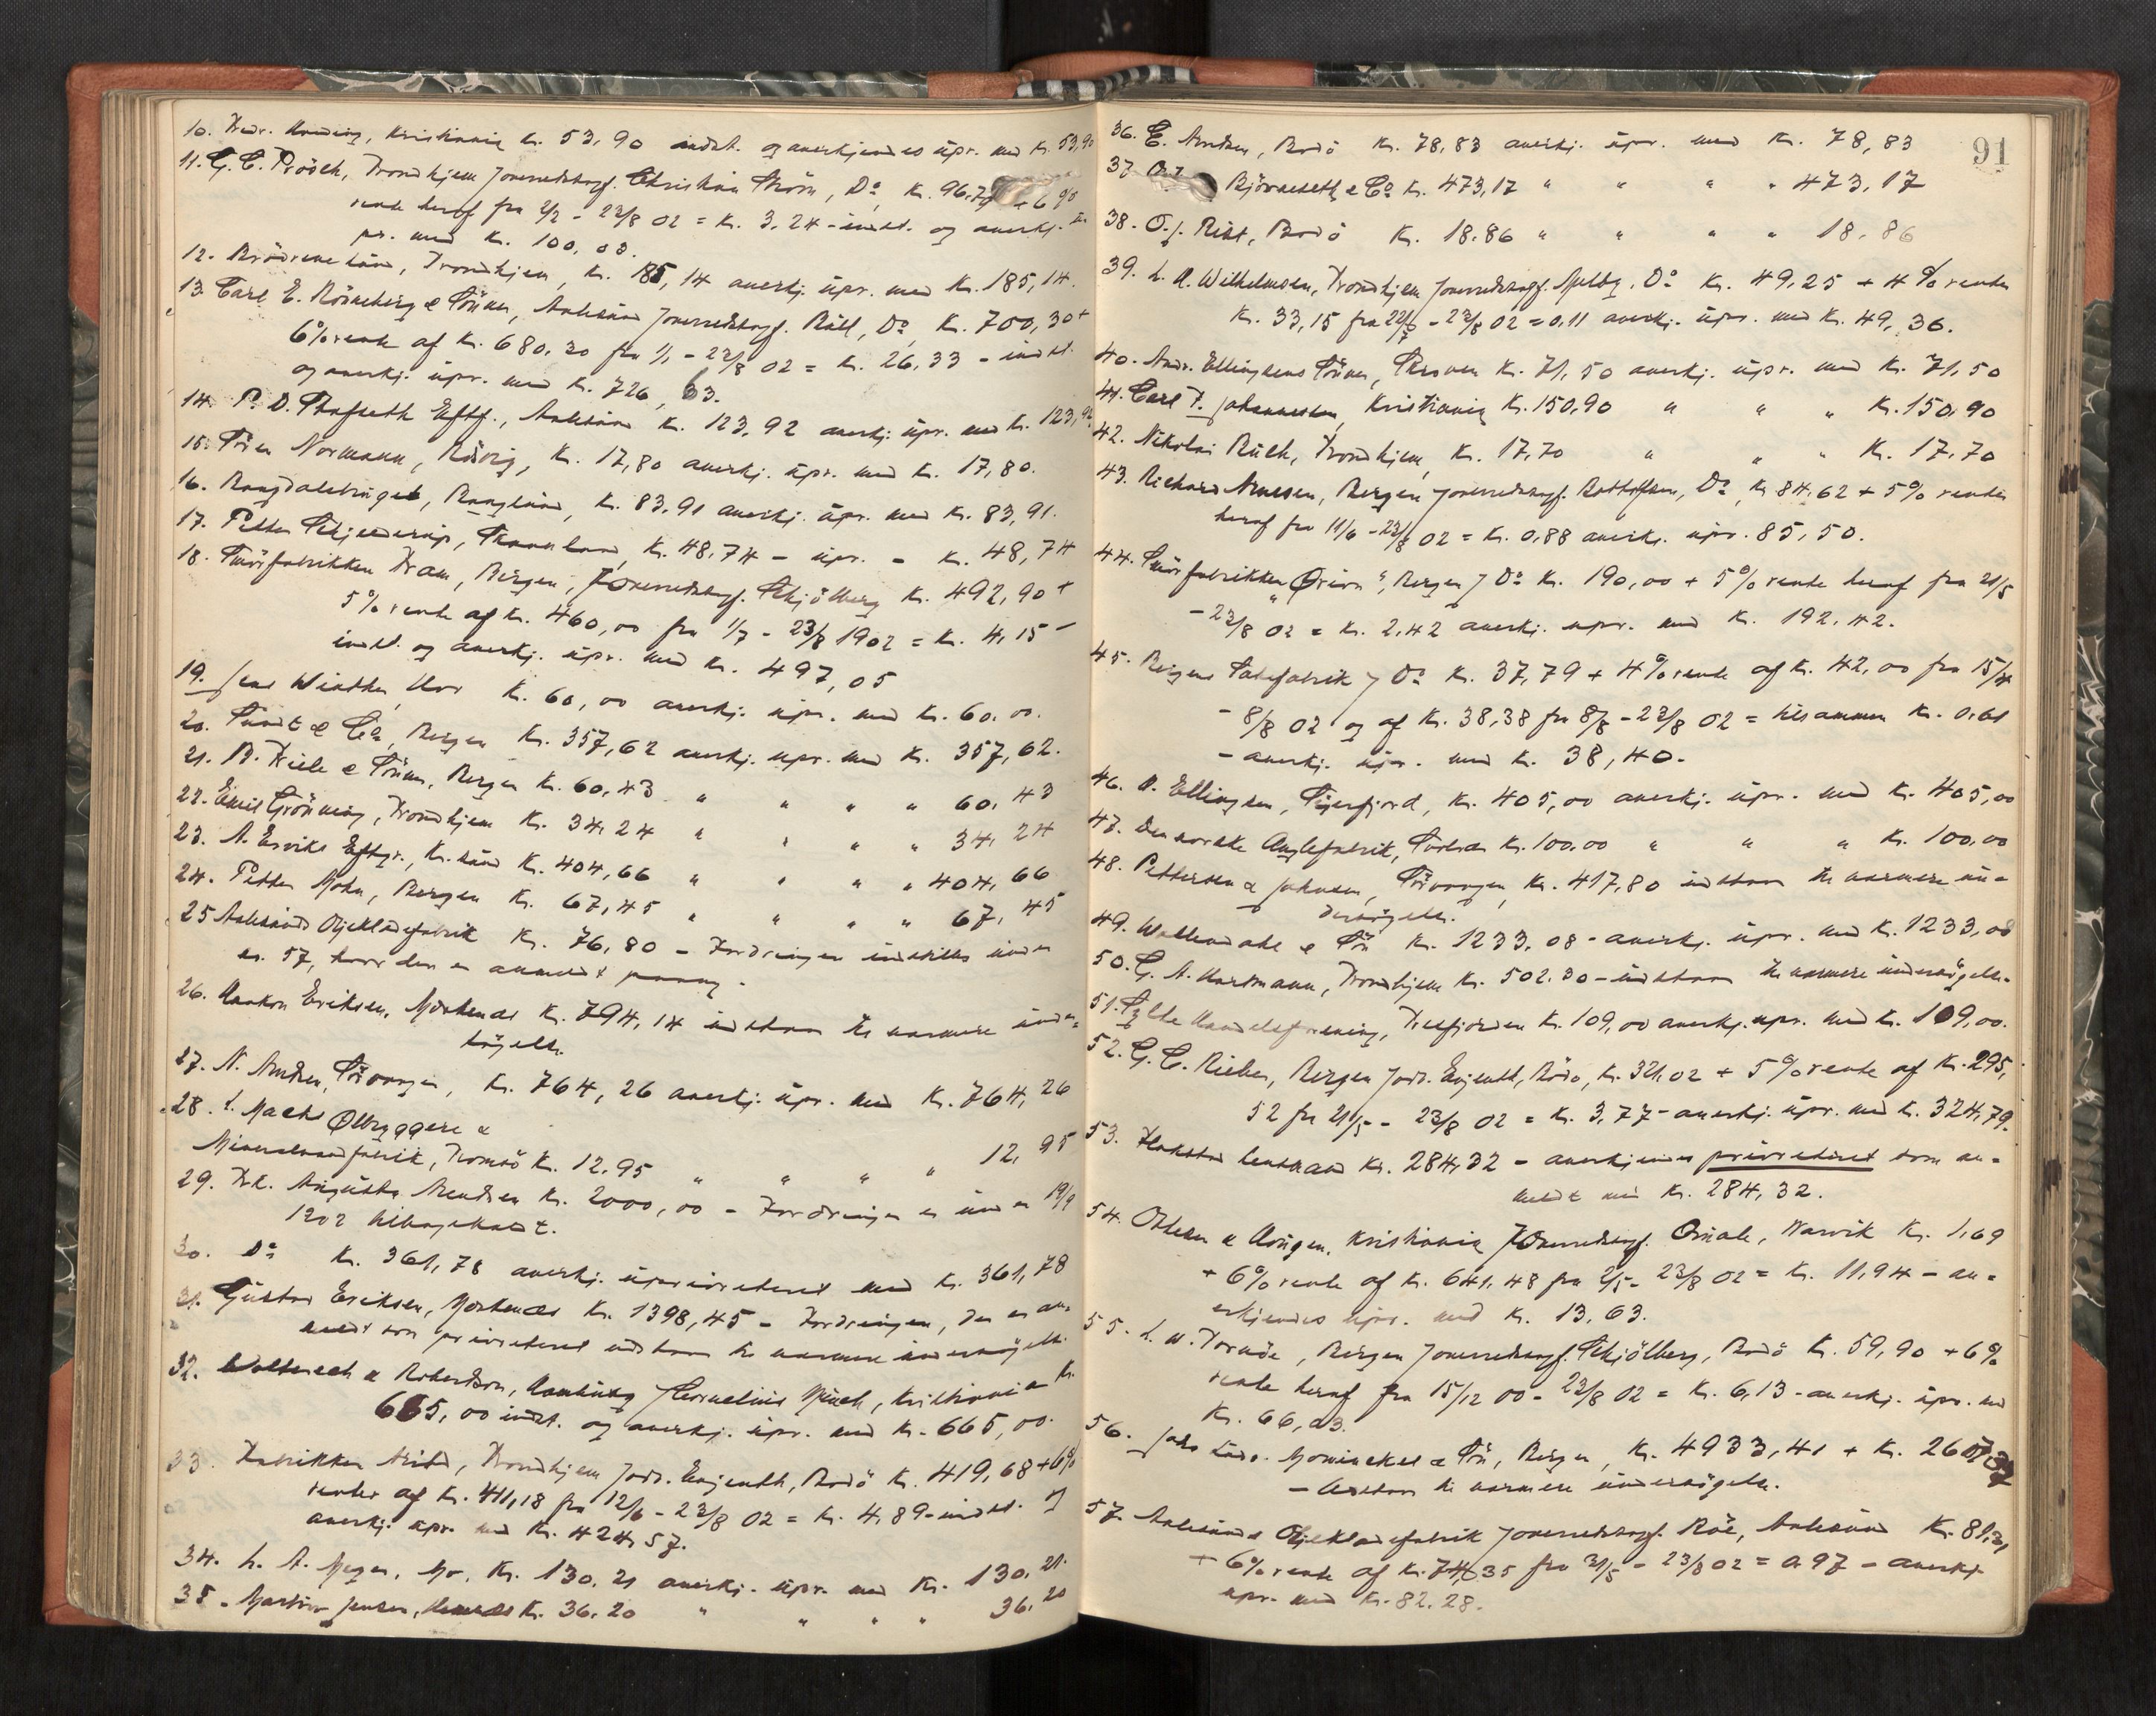 10. Fredr. Kristiania Kr. 53,90 indst. og anerkjendes upr. med Kr. 53,90
11. G. C. Prösch, Trondhjem /overretssagf. Christian Thorn, Do, Kr. 96,79 + 6%
rente heraf fra 2/2 - 23/8 02 = Kr. 3,24 - indst. og anerkj. u-
pr. med Kr. 100,03.
12. Brödrene Trondhjem, Kr. 185,14 anerkj. upr. med Kr. 185,14.
13. Carl E. Rönneberg & Sönner, Aalesund /overretssagf. Do, Kr. 700,30 +
6% rente af Kr. 680,30 fra 1/1 - 23/8 02 = Kr. 26,33 - indst.
og anerkj. upr. med Kr. 726,63.
14. P. D. Stafseth Eftf., Aalesund Kr. 123,92 anerkj. upr. med Kr. 123,92
15. Sören Normann, Rörvig, Kr. 17,80 anerkj. upr. med Kr. 17,80.
16. Kr. 83,91 anerkj. upr. med Kr. 83,91.
17. Petter Schjelderup, Kr. 48,74 - upr. - Kr. 48,74
18. Smörfabrikken Fram, Bergen, /overretssagf. Schjölberg Kr. 492,90 +
5% rente af Kr. 460,00 fra 1/7 - 23/8 1902 = Kr. 4,15 -
indst. og anerkj. upr. med Kr. 497,05
19. Jens Winther Kr. 60,00 anerkj. upr. med Kr. 60,00.
20. Sundt & Co, Bergen Kr. 357,62 anerkj. upr. med Kr. 357,62.
21. B. Friele & Sönner, Bergen Kr. 60,43 " " " " 60,43
22. Emil Grönning, Trondhjem Kr. 34,24 " " " " 34,24
23. A. Eftgr., Kr.sund Kr. 404,66 " " " " 404,66
24. Petter Mohn, Bergen Kr. 67,45 " " " " 67,45
25 Aalesunds Oljeklædefabrik Kr. 76,80 - Fordringen indstilles under
no. 57, hvor den er anmeldt
26. Haakon Eriksen, Mortsund Kr. 794,14 udstaar til nærmere under-
søgelse.
27. N. Amdsen, Sörvaagen, Kr. 764,26 anerkj. upr. med Kr. 764,26
28. L. Macks Ølbryggeri &
Mineralvandfabrik, Tromsö Kr. 12,95 " " " " 12,95
29. Frk. Augusta Arentsen Kr. 2000,00 - Fordringen er under 19/9
1902 tilbagekaldt.
30. Do Kr. 361,78 anerkj. uprivateret med Kr. 361,78
31. Gustav Eriksen, Mortsund Kr. 1398,45 - Fordringen, der er an-
meldt som privateret udstaar til nærmere undersøgelse.
32. & Robertson, Hamburg /Cornelius Münch, Kristiania Kr.
665,00 indst. og anerkj. upr. med Kr. 665,00.
33. Fabrikken Trondhjem /ovr. Engenth, Bodö Kr. 419,68 + 6%
renter af Kr. 411,18 fra 12/6 - 23/8 02 = Kr. 4,89 - indst. og
anerkj. upr. med Kr. 424,57.
34. L. A. Meyer, Mo, Kr. 130,21 anerkj. upr. med Kr. 130,21.
35. Martin Jensen, Kr. 36,20 " " " " 36,20
91
36. E. Amdsen, Bodö Kr. 78,83 anerkj. upr. med Kr. 78,83
37. Björneseth & Co Kr. 473,17 " " " " 473,17
38. O. J. Rist, Bodö Kr. 18,86 " " " " 18,86
39. L. A. Wilhelmsen, Trondhjem /overretssagf. Melby, Do Kr. 49,25 + 4% renter
Kr. 33,15 fra 22/7 - 23/8 02 = 0,11 anerkj. upr. med Kr. 49,36.
40. Andr. Ellingsens Sönner, Kr. 71,50 anerkj. upr. med Kr. 71,50
41. Carl F. Johannessen, Kristiania Kr. 150,90 " " " Kr. 150,90
42. Nikolai Buch, Trondhjem, Kr. 17,70 " " " Kr. 17,70
43. Richard Arnesen, Bergen /overretssagf. Do, Kr. 84,62 + 5% renter
heraf fra 11/6 - 23/8 02 = Kr. 0,88 anerkj. upr. 85,50.
44. Smörfabrikken "Ørnen", Bergen / Do Kr. 190,00 + 5% rente heraf fra 21/5
- 23/8 02 = Kr. 2,42 anerkj. upr. med Kr. 192,42.
45. Bergens / Do Kr. 37,79 + 4% rente af Kr. 42,00 fra 15/4
- 8/8 02 og af Kr. 38,38 fra 8/8 - 23/8 02 = tilsammen Kr. 0,61
- anerkj. upr. med Kr. 38,40.
46. A. Ellingsen, Kr. 405,00 anerkj. upr. med Kr. 405,00
47. Den norske Anglefabrik, Kr. 100,00 " " " Kr. 100,00
48. Pettersen & Johnsen, Sörvaagen, Kr. 417,80 udstaar til nærmere un-
dersøgelse.
49. Wallendahl & Sön Kr. 1233,08 - anerkj. upr. med Kr. 1233,08
50. G. A. Hartmann, Trondhjem Kr. 502,30 - udstaar til nærmere undersøgelse.
51. Sylte Handelsforening, Tresfjorden Kr. 109,00 anerkj. upr. med Kr. 109,00.
52. G. C. Rieber, Bergen /ovr. Engenth, Bodö, Kr. 321,02 + 5% rente af Kr. 295,
52 fra 21/5 - 23/8 02 = Kr. 3,77 - anerkj. upr. med Kr. 324,79.
53. Flakstad lensmand Kr. 284,32 - anerkjendes privateret som an-
meldt med Kr. 284,32.
54. Ottesen & Kristiania /overretssagf. Narvik Kr. 1,69
+ 6% rente af Kr. 641,48 fra 2/5 - 23/8 02 = Kr. 11,94 - an-
erkjendes upr. med Kr. 13,63.
55. L. W. Bergen /overretssagf. Schjölberg, Bodö Kr. 59,90 + 6%
rente heraf fra 15/12 00 - 23/8 02 = Kr. 6,13 - anerkj. upr. med
Kr. 66,03.
56. Johs Ludv. Mowinckel & Sön, Bergen, Kr. 4933,41 + Kr.
- Udstaar til nærmere undersøgelse.
57. Aalesunds Oljeklædefabrik /overretssagf. Aalesund Kr. 81,31
+ 6% rente af Kr. 74,35 fra 31/5 - 23/8 02 = 0,97 - anerkj.
upr. med Kr. 82,28.